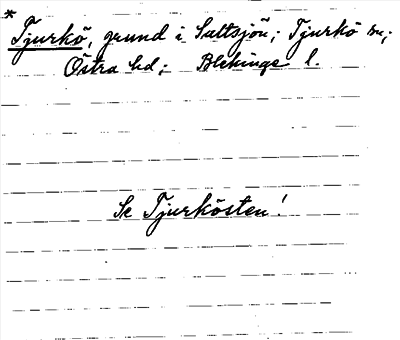 *
Tjurkö, grund i Saltsjön; Tjurkö sn;
Östra hd; Blekinge l.
Se Tjurkösten!